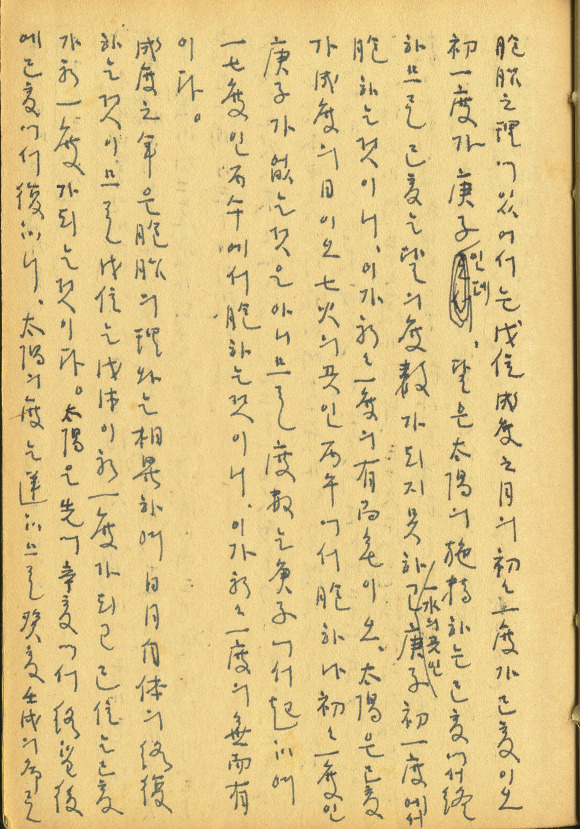 胞胎之理에 있어서는 戊位成度之月의 初一度가 己亥이오
初一度가 庚子인데, 달은 太陽의 施 하는 己亥에서 終
하므로 己亥는 달의 度數가 되지 못하고 一水의 곳인 庚子 初一度에서
胞하는 것이니, 이가 初一度의 有而 이오. 太陽은 己亥
가 成度의 日이오 七火의 곳인 丙午에서 胞하나 初初一度인
庚子가 없는 것은 아니므로 度數는 庚子에서 起하여
一七度인 丙午에서 胞하는 것이니, 이가 初初一度의 無而有
이다.
成度之年은 胞胎의 理와는 相異하며 日月自体의 終復
하는 것이므로 戊位는 戊戌이 初一度가 되고 己位는 己亥
가 初一度가 되는 것이다. 太陽은 先에 辛亥에서 終 後
에 己亥에서 復하니, 太陽의 度는 運하므로 癸亥 壬戌의 으로